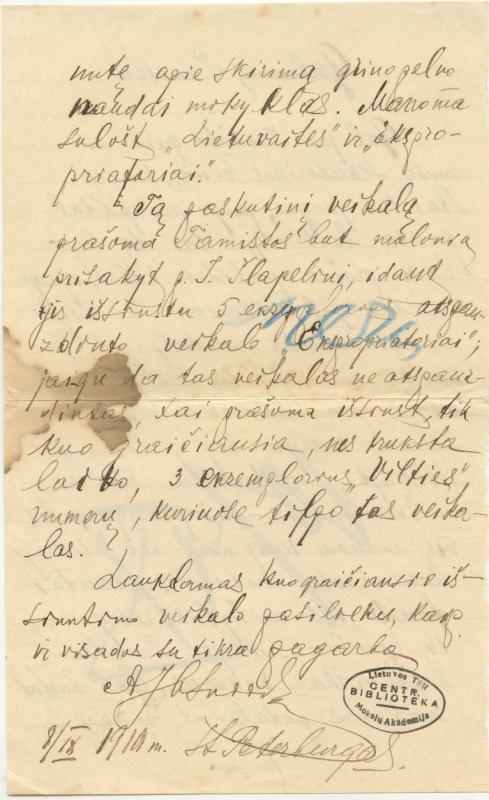 nutę apie skirimą grinopelno
naudai mokyklas. Manoma
sulošt „Lietuvaitės" ir „Ekspro-
priatoriai."
Tą paskutinį veikalą
prašoma Tamistos but malonia
prisakyt p. J. Šlapeliui, idant
jis išsiustu 5 atspau-
zdinto veikalo "Ekspropriatoriai";
jaigu da tas veikalas neatspauz-
dintas, tai prašoma išsiust, tik
kuo graičiausia, nes truksta
laiko, 3 ekzempliorius „Vilties"
numerų, kuriuose tilpo tas veika-
las.
Laukdamas kuograičiausio iš-
siuntimo veikalo pasilieku, kaip
ir visados su tikra pagarba
A.
8/IX 1910 m. St Peterburgas.
Lietuvos TSR
CENTR.
BIBLIOTEKA
Mokslų Akademija